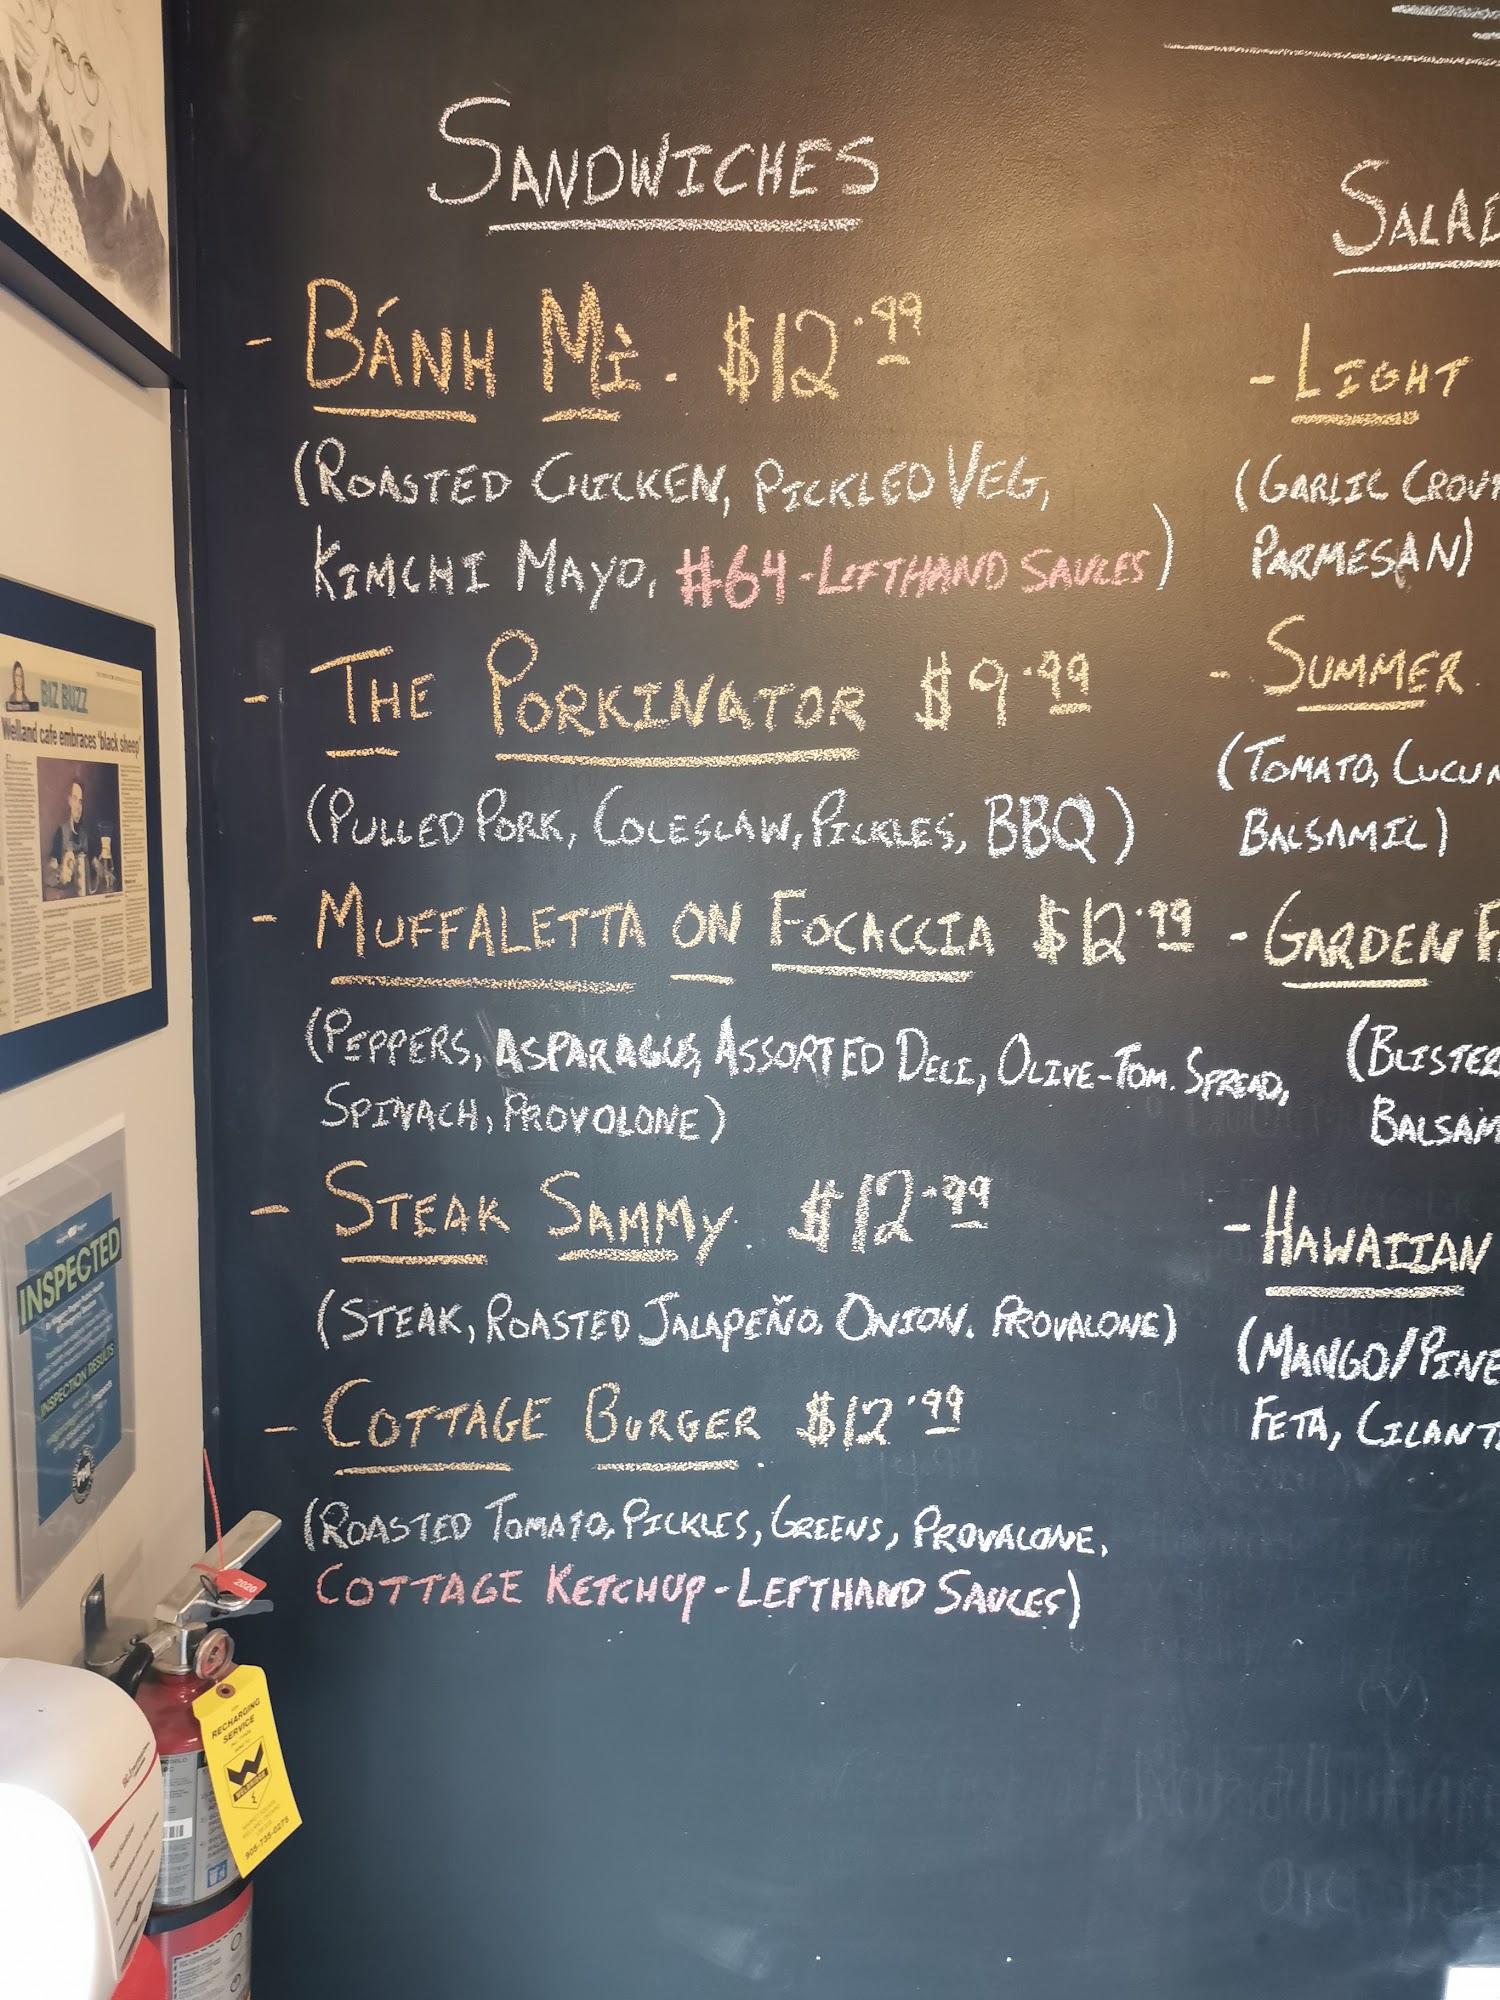 SANDWICHES
- BÁNH MÌ. $12.99
(ROASTED CHICKEN, PICKLED VEG,
KIMCHI MAYO, #64-LEFTHAND SAUCES)
- THE PORKINATOR $9.99
(PULLED PORK, COLESLAW, PICKLES, BBQ)
- MUFFALETTA ON FOCACCIA $12.99
(PEPPERS, ASPARAGUS, ASSORTED DELI, OLIVE-TOM. SPREAD,
SPINACH, PROVOLONE)
- STEAK SAMMY $12.99
(STEAK, ROASTED JALAPEÑO, ONION, PROVALONE)
- COTTAGE BURGER $12.99
(ROASTED TOMATO, PICKLES, GREENS, PROVALONE,
COTTAGE KETCHUP-LEFTHAND SAUCES)
SALAD
- LIGHT
(GARLIC CROU
PARMESAN)
- SUMMER
(TOMATO, CUCUM
BALSAMIC)
- GARDEN F
(BLISTE
BALSAM
- HAWAIIAN
(MANGO/PINE
FETA, CILANT
BIZ BUZZ
Welland cafe embraces 'black sheep'
INSPECTED
INSPECTION RESULTS
2020
RECHARGING
SERVICE
905-735-0275